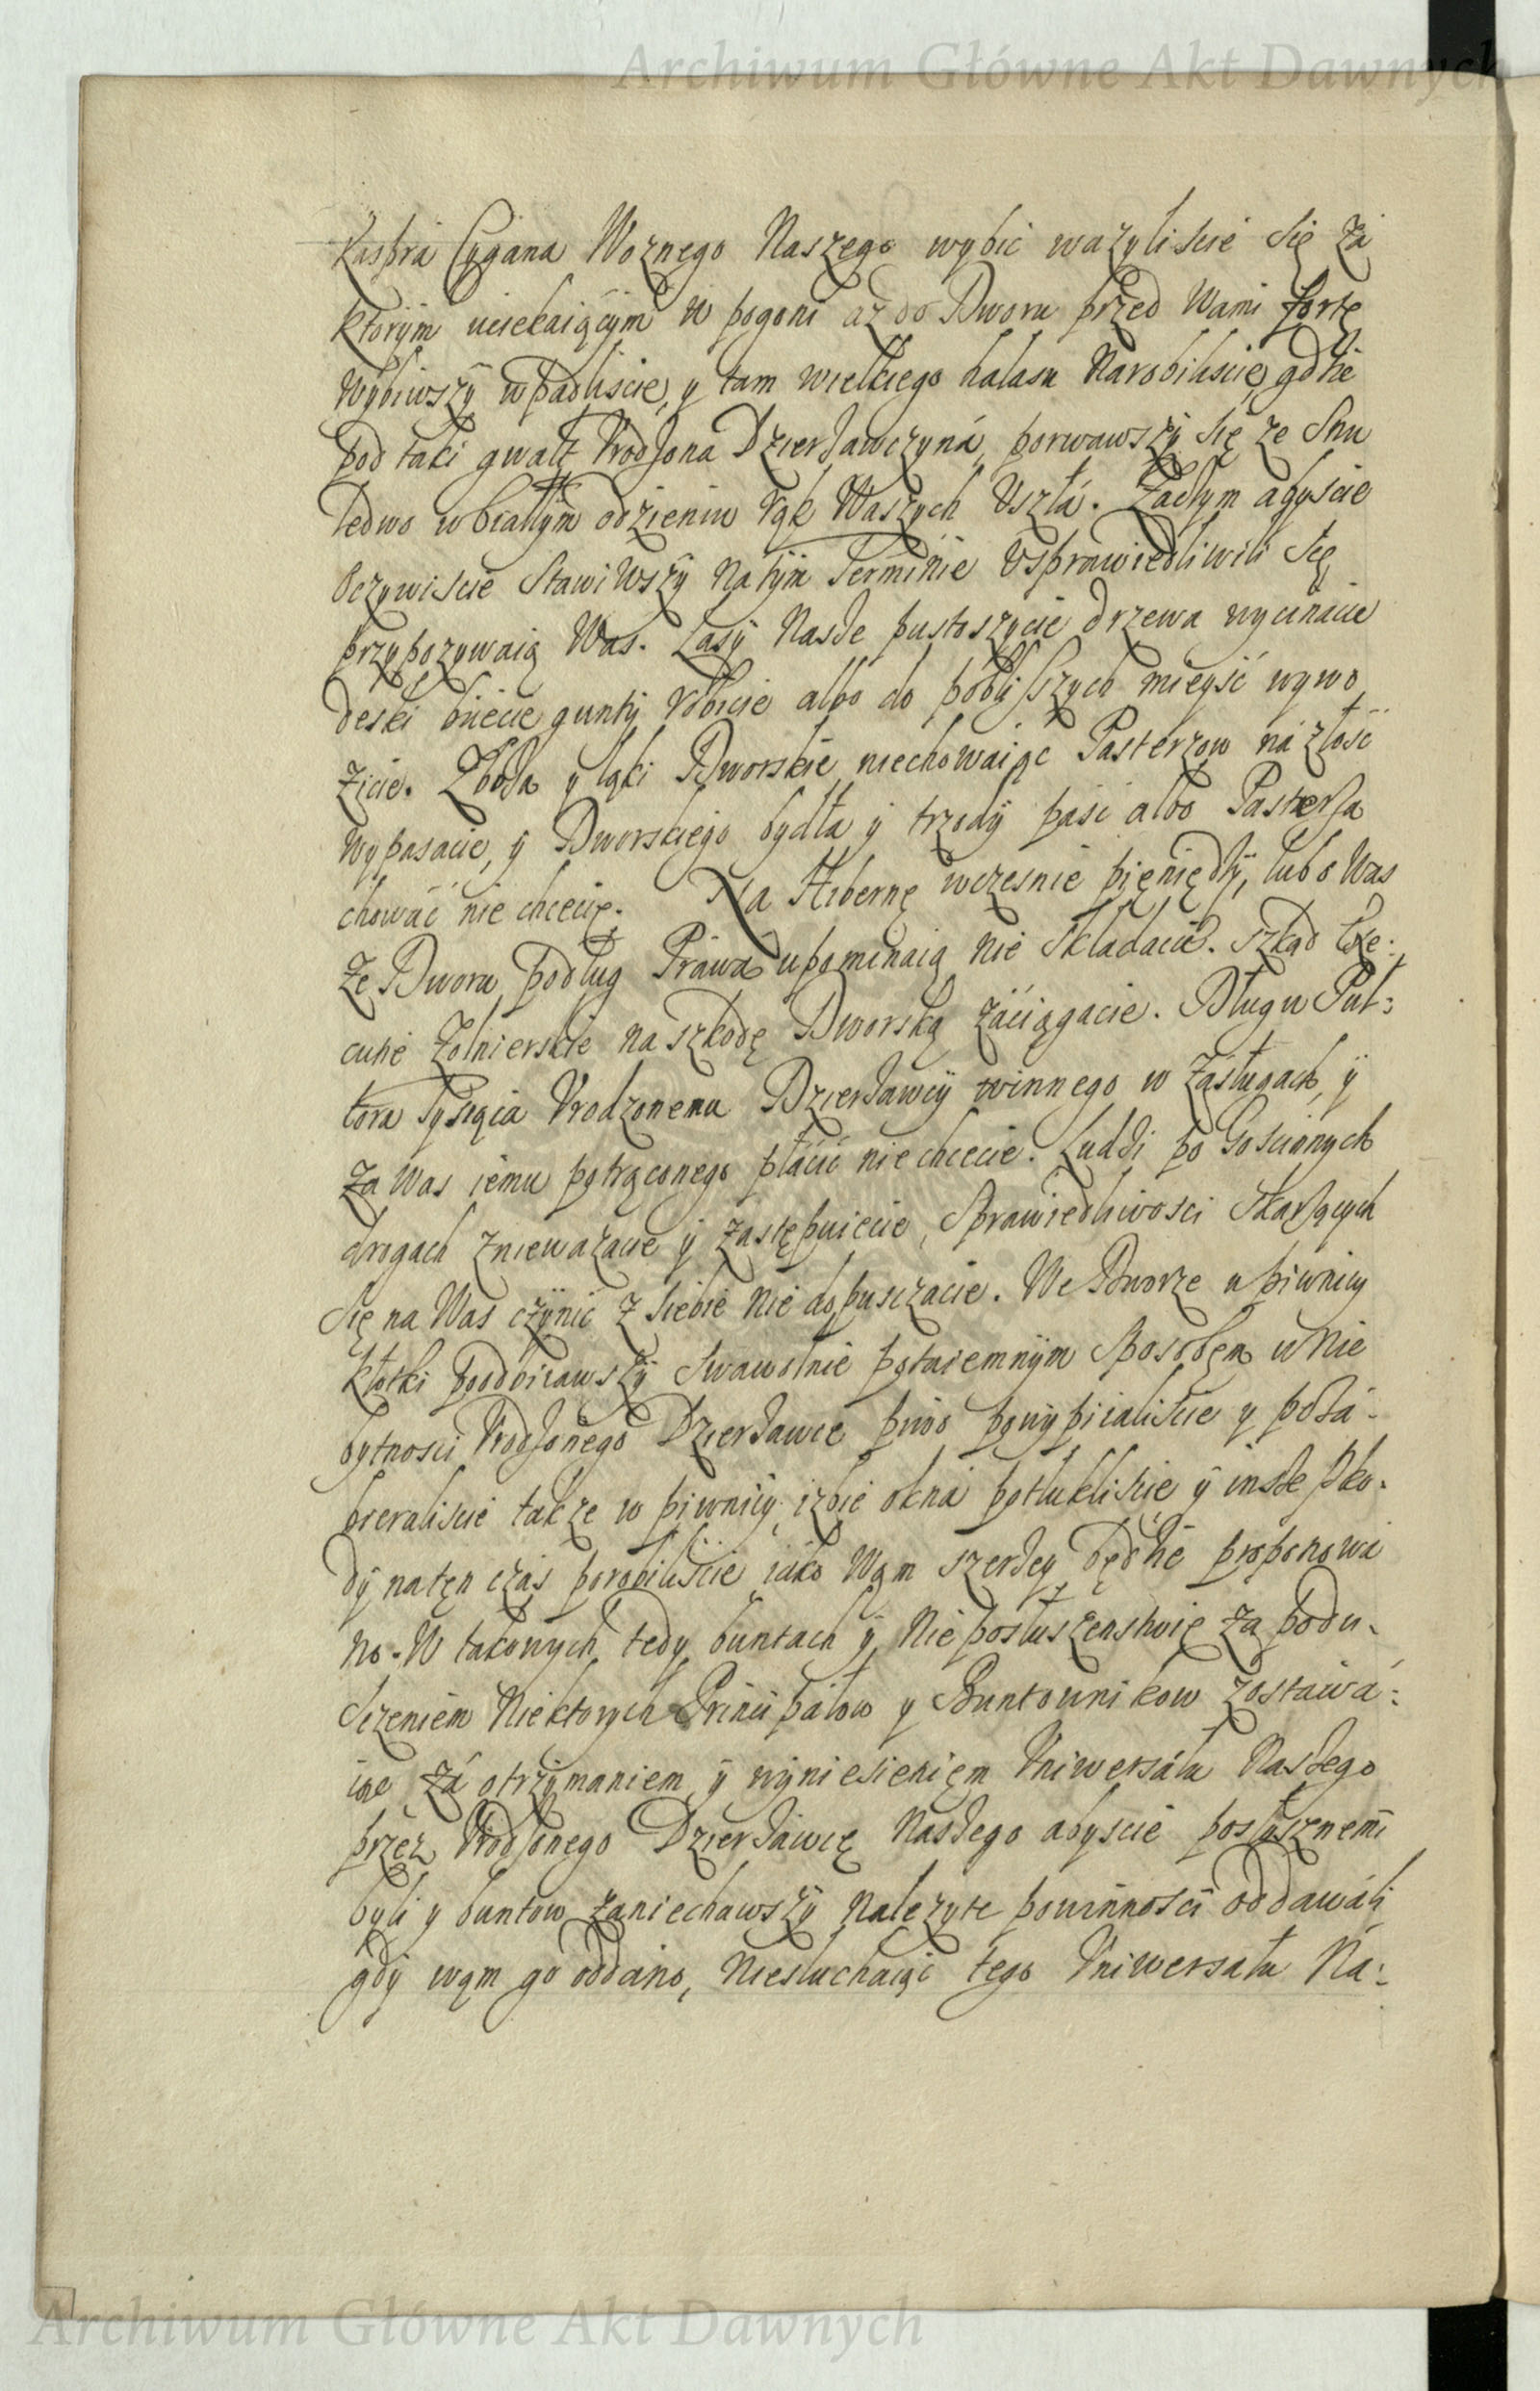 Archiwum Główne Akt Dawnych
Kaspra Cygana Woznego Naszego wybić wazyliscie się za
ktorym uciekaiącym w pogoni aż do Dworu przed Wami fortę
wybiwszy wpadliscie, y tam wielkiego halasu narobiliscie, gdzie
pod taki gwałt Vrodzona Dzierzawczyná, porwawszy się ze snu
ledwo w białym odzieniu rąk Waszych Vszłá. Zaczym abyscie
Oczywiscie stawiwszy na tym Terminie Vsprawiedliwili się
przypozywaią Was. Lasy Nasze pustoszycie drzewa wycinacie
deski bijecie gunty robicie albo do pobliszych mieysć wywo
zicie. Zboża y łąki Dworskie niechowaiąc Pasterzow ná złosć
wypasacie, y Dworskiego bydła y trzody pasć albo Pasterza
chować nie chcecię. Na Hibernę wczesnie pięniędzy, lubo Was
ze Dworu podług Prawa upominaią nie składacie. Szkąd Exe:
cutie Zołnierskie na szkodę Dworską záciągacie. Długu Puł:
tora Tysiąca Vrodzonemu Dzierżawcy winnego w Zásługach, y
za Was iemu potrąconego płácić nie chcecie. Ludzi po Goscinnych
drogach zniewazacie y zastępuiecie, Sprawiedliwosci skarżących
się na Was czynić z siebie nie dopusczacie. We Dworze u piwnicy
kłotki poodbiiawszy swawolnie potaiemnym sposobęm w nie
bytnosci Vrodzonego Dzierżawce piwo powypiialiscie y poza-
bieraliscie także w piwnicy, izbie okná potłukliscie y insze szko-
dy natęn czás porobiliscie iáko Wąm szerzey będzie proponowa
no. W takowych tedy buntach y Nieposłuszenstwię zá podu-
sczeniem Niektorych Principáłow y Buntownikow zostáwá:
iąc zá otrzymaniem y wyniesienięm Vniwersáłu Naszego
przez Vrodzonego Dzierżáwcę Naszego abyscie posłusznemi
byli y buntow zaniechawszy należyte powinnosci oddawáli
gdy wąm go oddano, niesłuchaiąc tego Vniwersału Ná:
Archiwum Główne Akt Dawnych